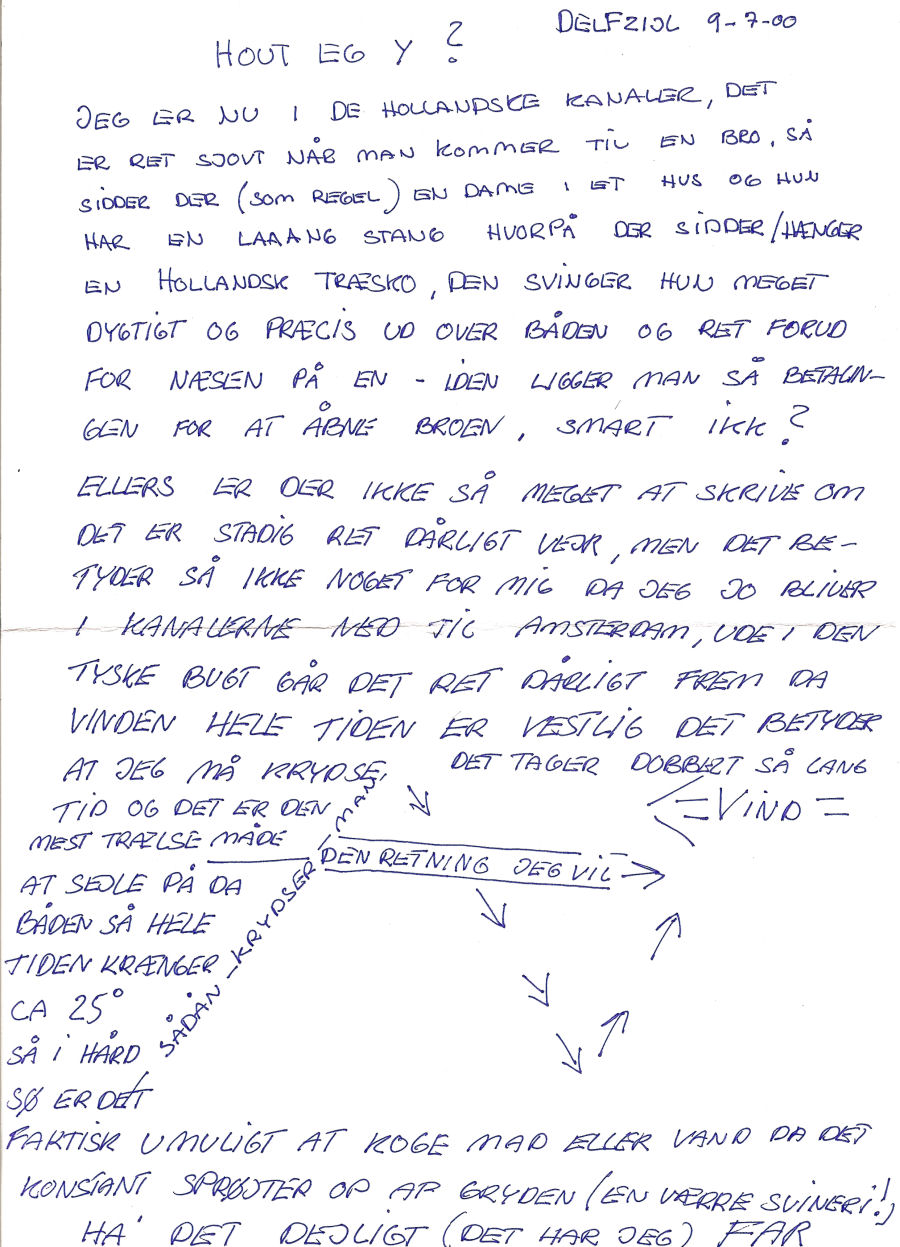 DELFZIJL 9-7-00
HOUT EG Y ?
JEG ER NU I DE HOLLANDSKE KANALER, DET
ER RET SJOVT NÅR MAN KOMMER TIL EN BRO, SÅ
SIDDER DER (SOM REGEL) EN DAME I ET HUS OG HUN
HAR EN LAAANG STANG HVORPÅ DER SIDDER/HÆNGER
EN HOLLANDSK TRÆSKO, DEN SVINGER HUN MEGET
DYGTIGT OG PRÆCIS UD OVER BÅDEN OG RET FORUD
FOR NÆSEN PÅ EN - IDEN LIGGER MAN SÅ BETALIN-
GEN FOR AT ÅBNE BROEN, SMART IKK?
ELLERS ER DER IKKE SÅ MEGET AT SKRIVE OM
DET ER STADIG RET DÅRLIGT VEJR, MEN DET BE-
TYDER SÅ IKKE NOGET FOR MIG DA JEG JO BLIVER
I KANALERNE NED TIL AMSTERDAM, UDE I DEN
TYSKE BUGT GÅR DET RET DÅRLIGT FREM DA
VINDEN HELE TIDEN ER VESTLIG DET BETYDER
AT JEG MÅ KRYDSE, DET TAGER DOBBELT SÅ LANG
TID OG DET ER DEN
MEST TRÆLSE MÅDE
AT SEJLE PÅ DA
BÅDEN SÅ HELE
TIDEN KRÆNGER
CA 25°
SÅ I HÅRD
SØ ER DET
FAKTISK UMULIGT AT KOGE MAD ELLER VAND DA DET
KONSTANT SPRØJTER OP AF GRYDEN (EN VÆRRE SVINERI!)
HA' DET DEJLIGT (DET HAR JEG) FAR
<=VIND=
DEN RETNING JEG VIL
SÅDAN KRYDSER MAN